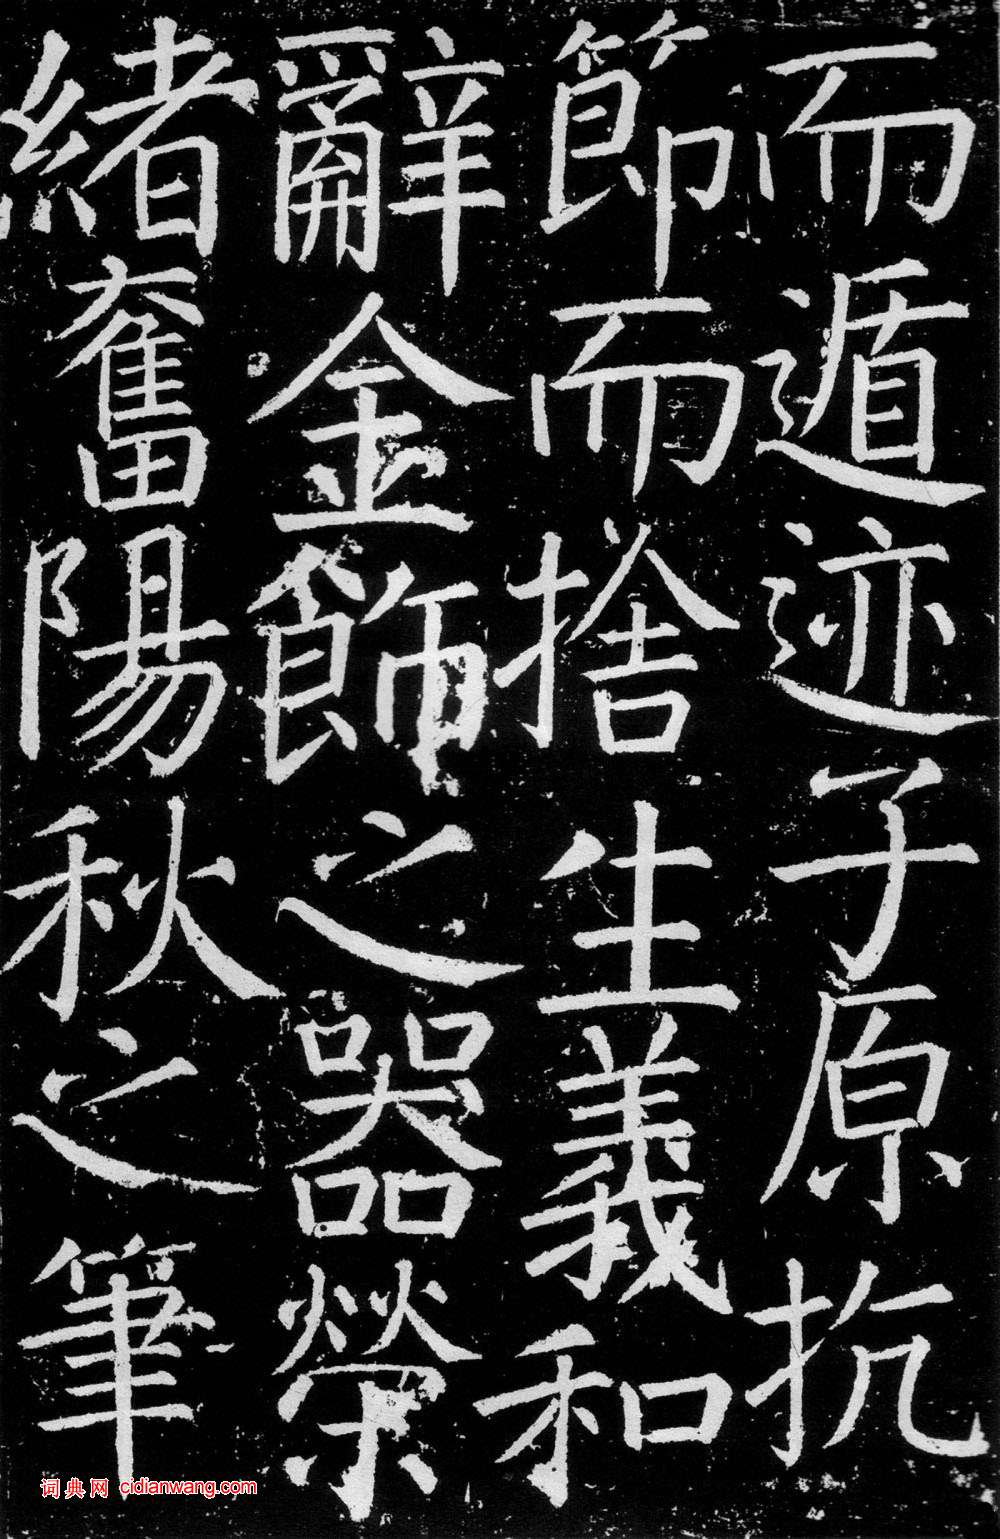 而遁迹子原抗
節而捨生義和
辭金飾之器榮
緒奮陽秋之筆
词典网 cidianwang.com